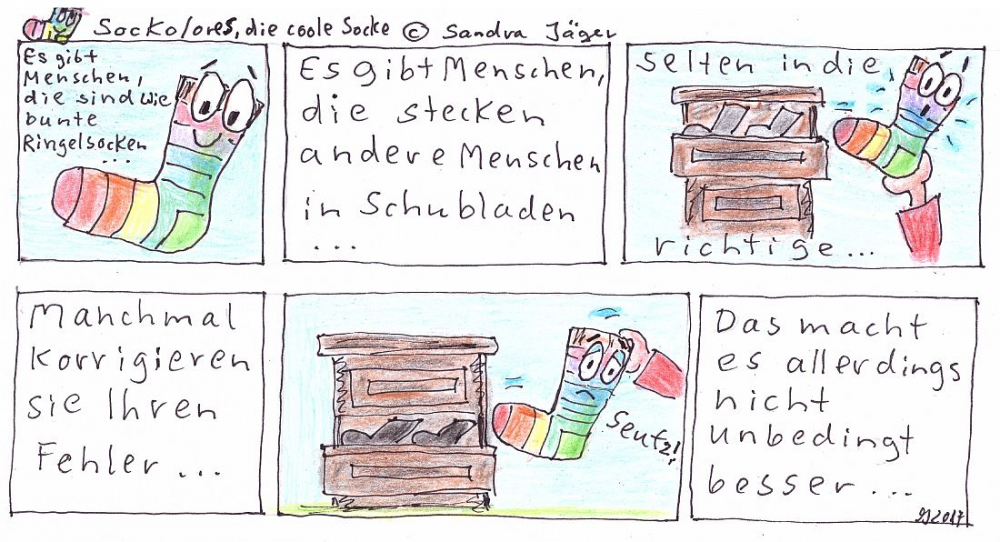 Sockolores, die coole Socke © Sandra Jäger
Es gibt
Menschen,
die sind wie
bunte
Ringelsocken
...
Es gibt Menschen,
die stecken
andere Menschen
in Schubladen
...
Selten in die
richtige...
Manchmal
korrigieren
sie Ihren
Fehler...
Seufz!
Das macht
es allerdings
nicht
unbedingt
besser...
SJ2017